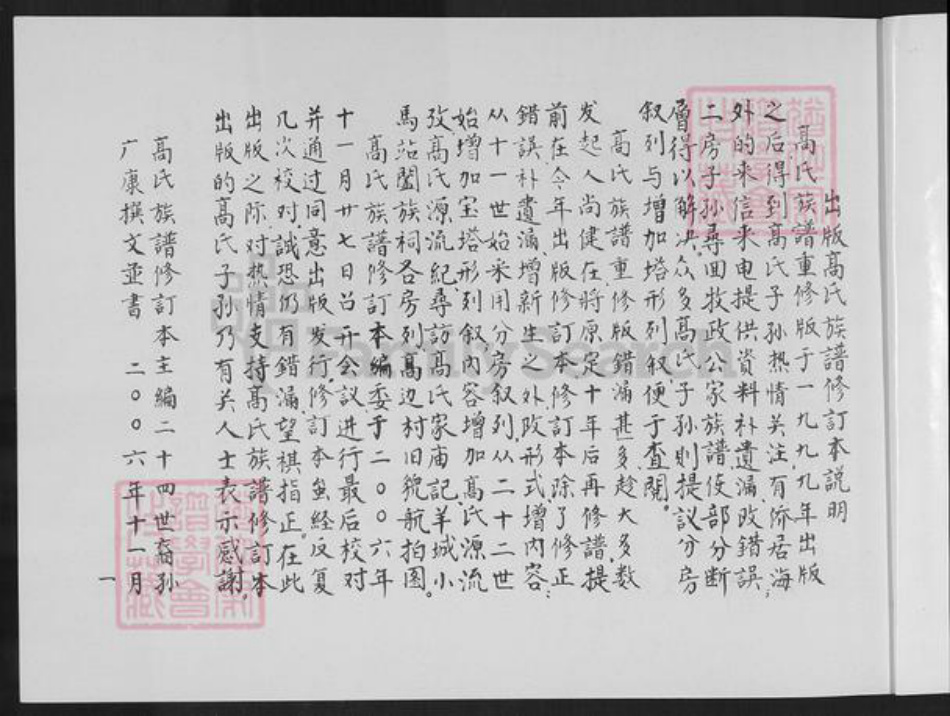 出版高氏族譜修訂本説明
高氏族譜重修版于一九九九年出版
之后得到高氏子孙热情关注,有侨居海
外的来信来电提供资料补遗漏,改错誤;
二房子孙尋回牧政公家族譜使部分断
層得以解决。众多高氏子孙则提议分房
叙列与增加塔形列叙便于查閲。
高氏族譜重修版錯漏甚多趁大多数
发起人尚健在将原定十年后再修譜提
前在今年出版修訂本,修訂本除了修正
錯誤,补遺漏,增新生之外改形式,增内容;
从十一世始采用分房叙列,从二十二世
始增加宝塔形列叙,内容增加高氏源流
攷,高氏源流紀,尋訪高氏家庙記,羊城小
馬站闔族祠各房列,高边村旧貌航拍图。
高氏族譜修訂本編委于二〇〇六年
十一月廿七日召开会议進行最后校对
并通过同意出版发行,修訂本虽经反复
几次校对,誠恐仍有錯漏,望祺指正。在此
出版之际,对热情支持高氏族譜修訂本
出版的高氏子孙乃有关人士表示感謝。
高氏族譜修訂本主編二十四世裔孙
广康撰文並書 二〇〇六年十一月
一
FamilySearch